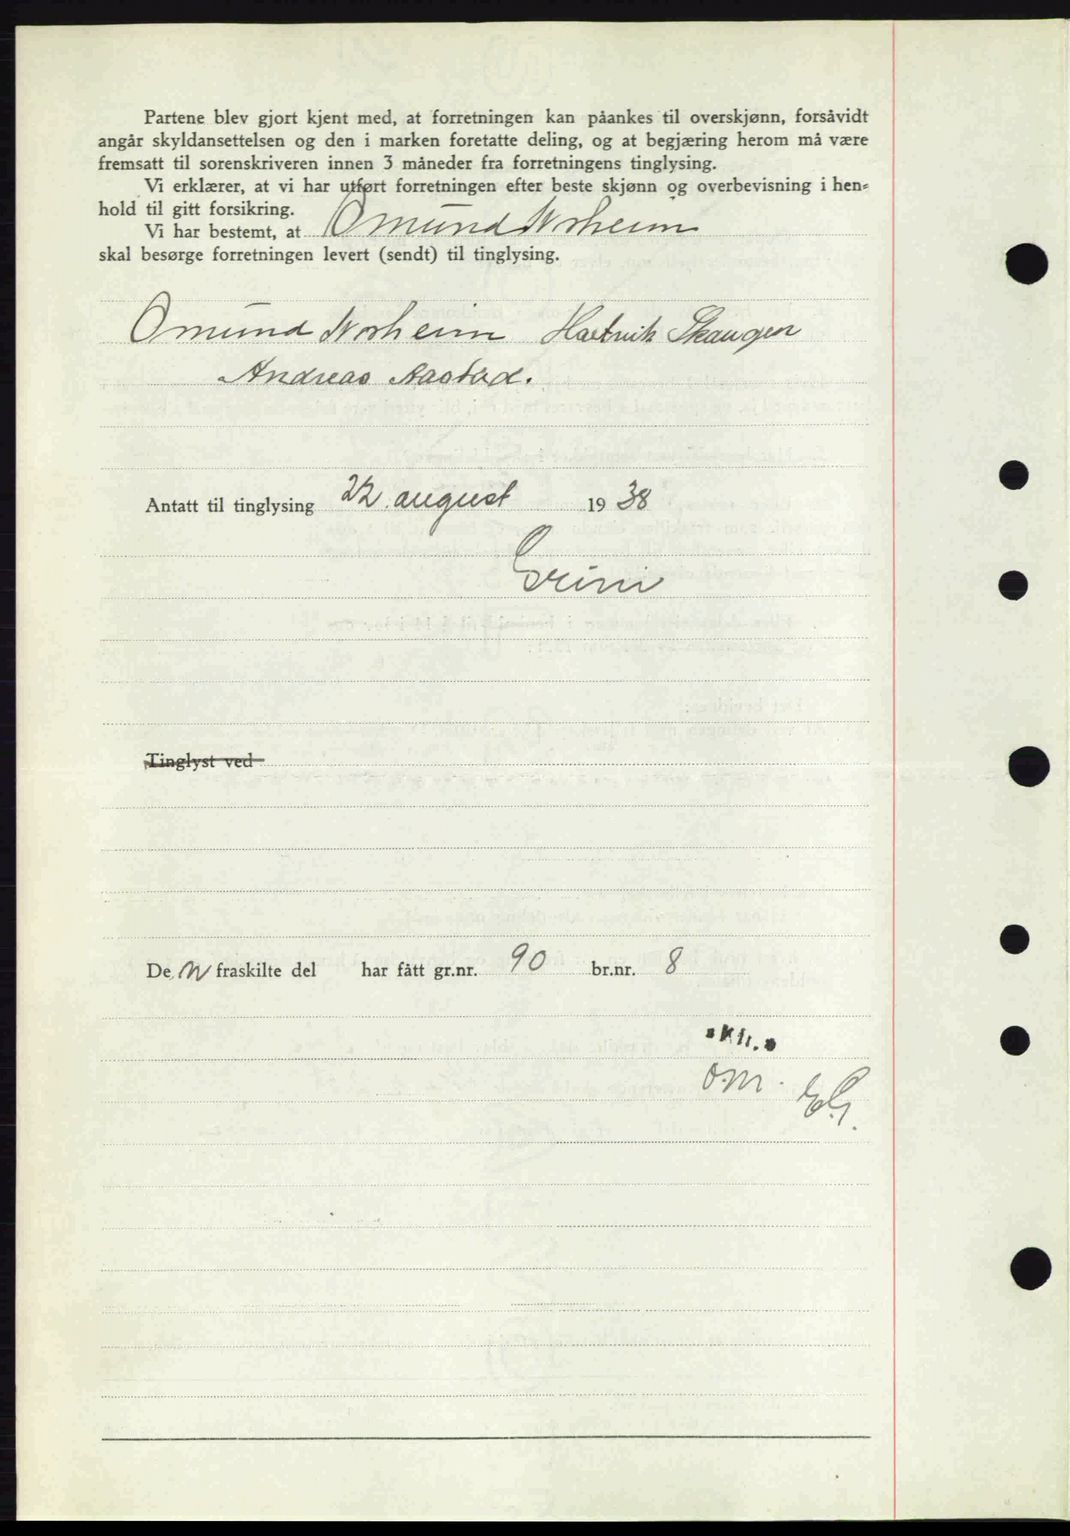 Partene blev gjort kjent med, at forretningen kan påankes til overskjønn, forsåvidt
angår skyldansettelsen og den i marken foretatte deling, og at begjæring herom må være
fremsatt til sorenskriveren innen 3 måneder fra forretningens tinglysing.
Vi erklærer, at vi har utført forretningen efter beste skjønn og overbevisning i hen-
hold til gitt forsikring.
Vi har bestemt, at Omund Norheim
skal besørge forretningen levert (sendt) til tinglysing.
Omund Norheim Hartvik Skaugen
Andreas Aastad.
Antatt til tinglysing 22. august 1938
Grini
Tinglyst ved
Den fraskilte del har fått gr.nr. 90 br.nr. 8
O.M. EG.